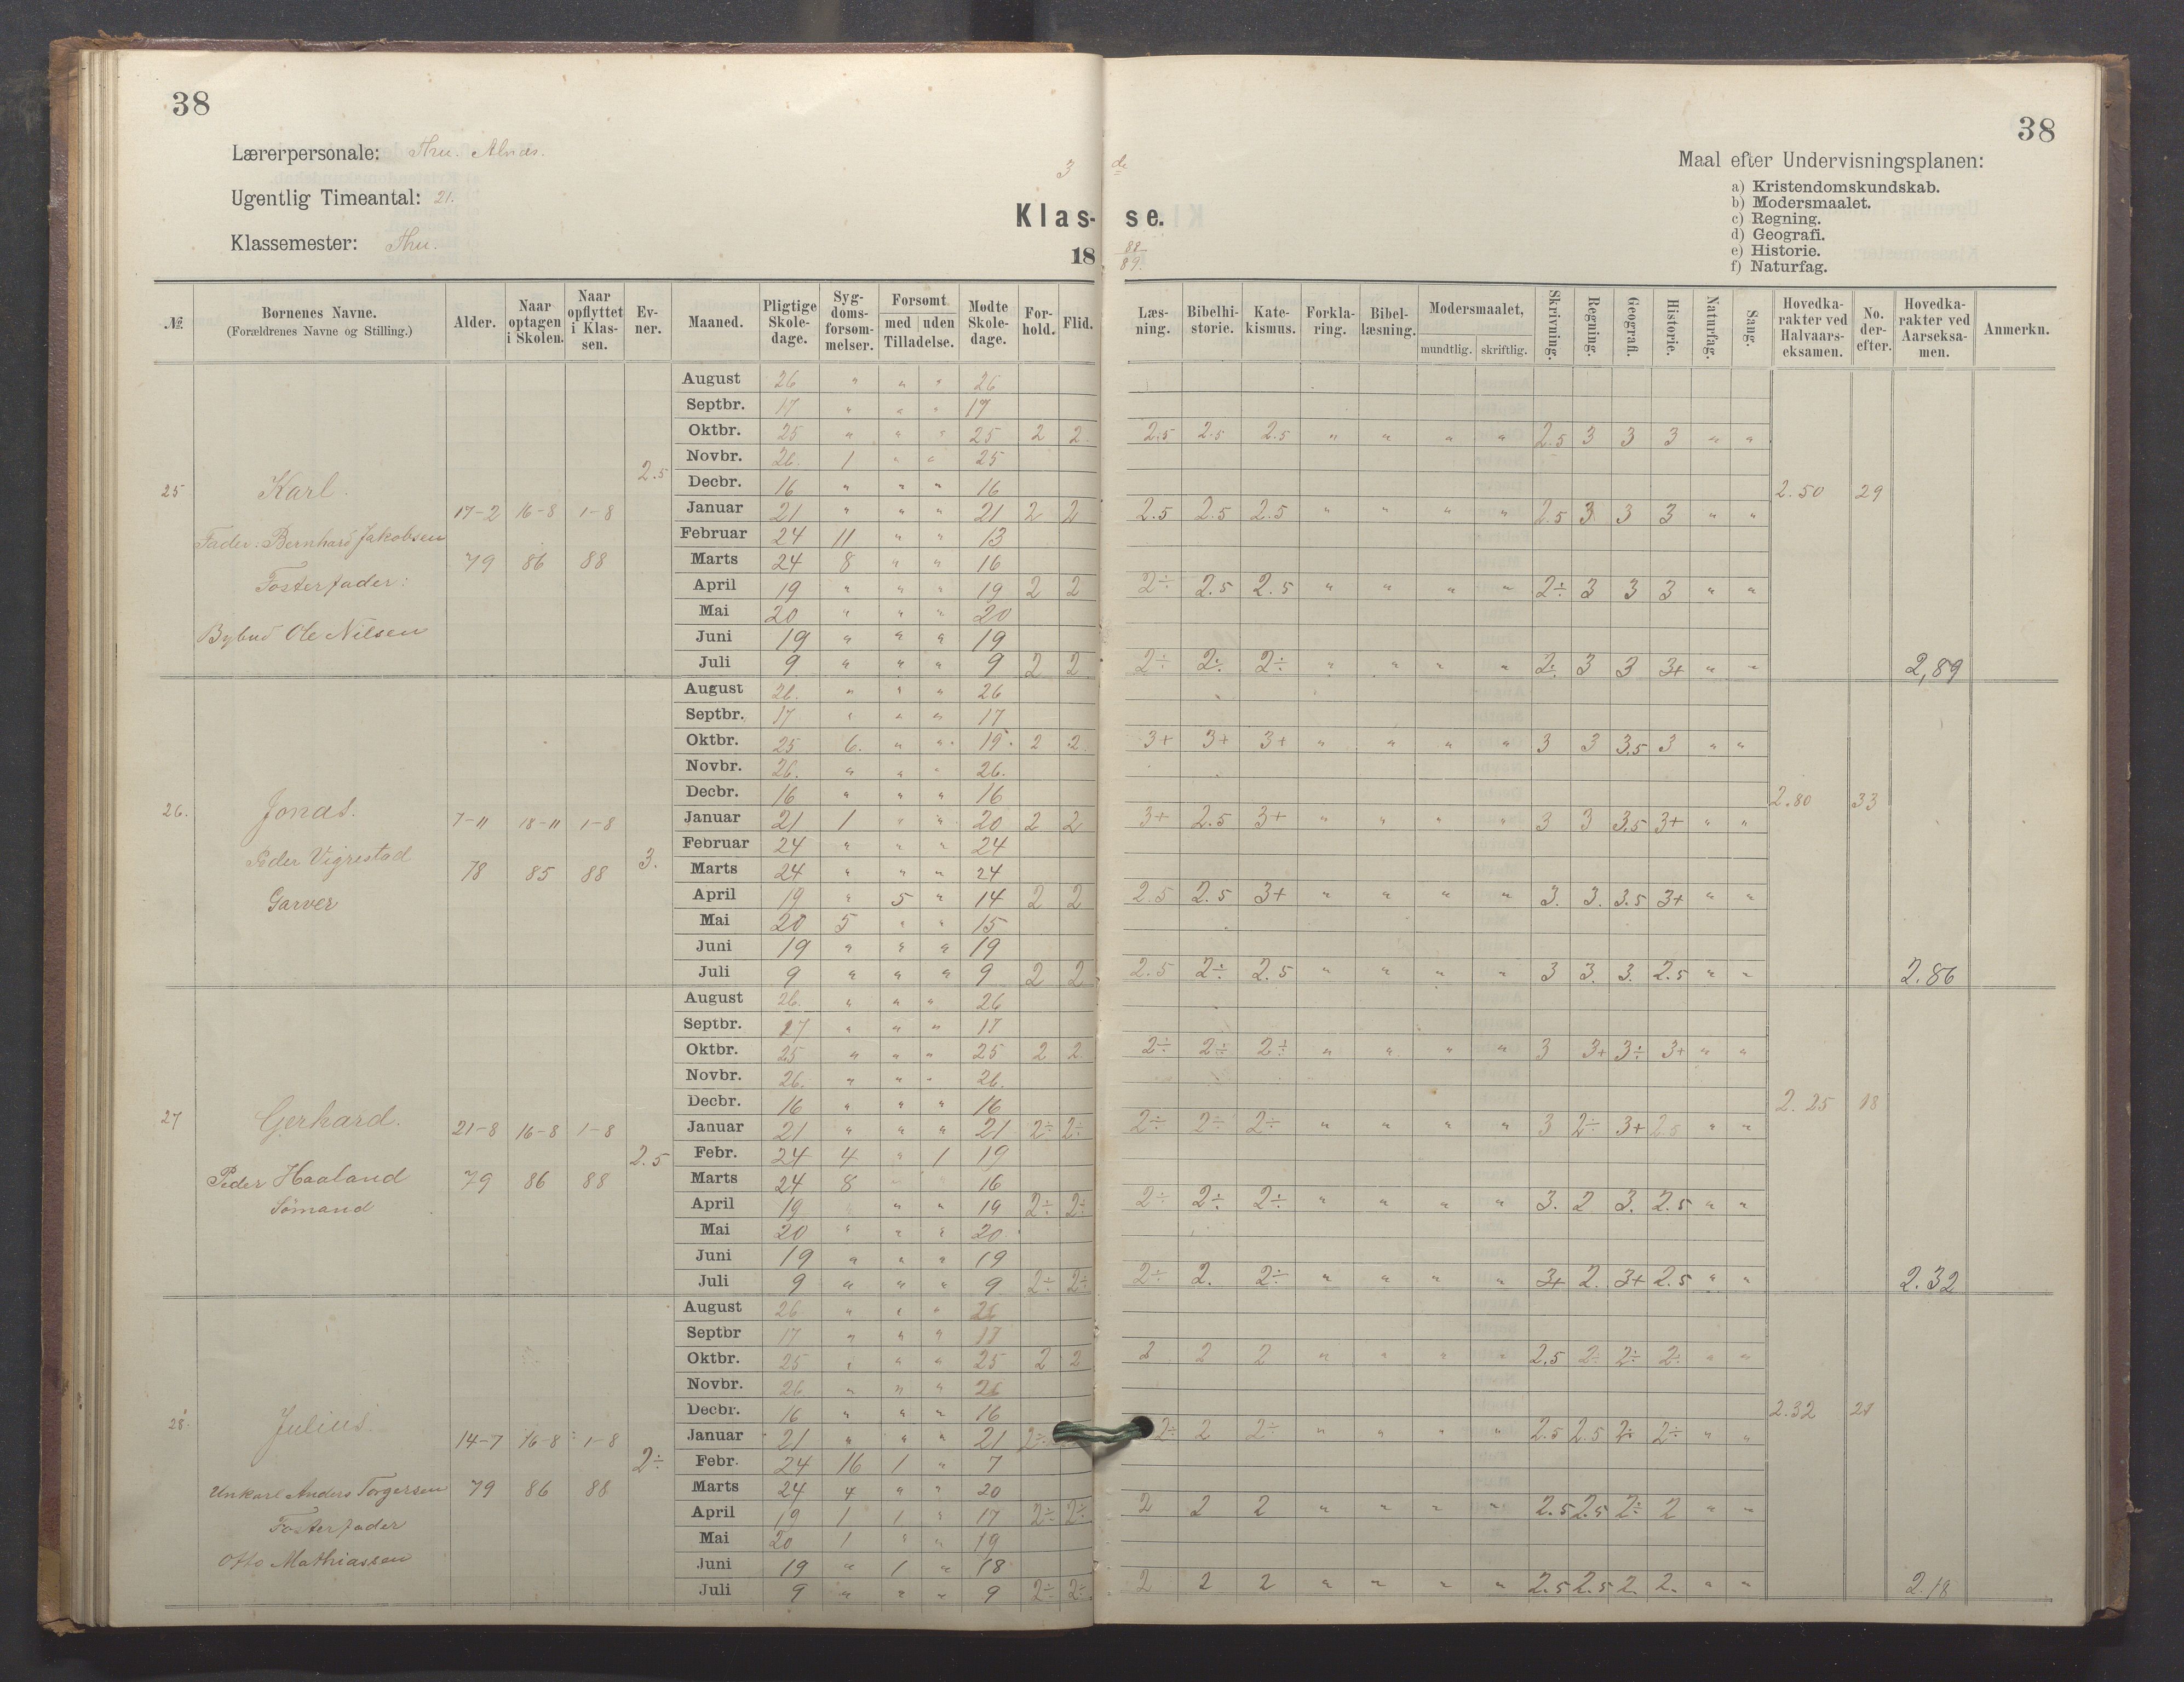 38
38
Lærerpersonale: Thu. Alnæs.
Ugentlig Timeantal: 21.
Klassemester: Thu.
3 de
Klas- se.
18 88/89.
Maal efter Undervisningsplanen:
a) Kristendomskundskab.
b) Modersmaalet.
c) Regning.
d) Geografi.
e) Historie.
f) Naturfag.
№. Børnenes Navne. (Forældrenes Navne og Stilling.) Alder. Naar optagen i Skolen. Naar opflyttet i Klassen. Evner. Maaned. Pligtige Skoledage. Sygdomsforsømmelser. Forsømt med uden Tilladelse. Mødte Skoledage. Forhold. Flid. Læsning. Bibelhistorie. Katekismus. Forklaring. Bibellæsning. Modersmaalet, mundtlig. skriftlig. Skrivning. Regning. Geografi. Historie. Naturfag. Sang. Hovedkarakter ved Halvaarseksamen. No. derefter. Hovedkarakter ved Aarseksamen. Anmerkn.
25 Karl.
Fader: Bernhard Jakobsen
Fosterfader:
Bybud Ole Nilsen
17-2 79 16-8 86 1-8 88 2.5
August 26 " " " 26
Septbr. 17 " " " 17
Oktbr. 25 " " " 25 2 2 2.5 2.5 2.5 " " " " 2.5 3 3 3 " "
Novbr. 26. 1 " " 25
Decbr. 16 " " " 16 2.50 29
Januar 21 " " " 21 2 2 2.5 2.5 2.5 " " " " 2.5 3 3 3 " "
Februar 24 11 " " 13
Marts 24 8 " " 16
April 19 " " " 19 2 2 2÷ 2.5 2.5 " " " " 2÷ 3 3 3 " "
Mai 20 " " " 20
Juni 19 " " " 19
Juli 9 " " " 9 2 2 2÷ 2÷ 2÷ " " " " 2÷ 3 3 3+ " " 2,89
26. Jonas.
Peder Vigrestad
Garver
7-11 78 18-11 85 1-8 88 3.
August 26. " " " 26
Septbr. 17 " " " 17
Oktbr. 25 6. " " 19. 2 2 3+ 3+ 3+ " " " " 3 3 3.5 3 " "
Novbr. 26. " " " 26.
Decbr. 16 " " " 16 2.80 33
Januar 21 1 " " 20 2 2 3+ 2.5 3+ " " " " 3 3 3.5 3+ " "
Februar 24 " " " 24
Marts 24 " " " 24
April 19 " 5 " 14 2 2 2.5 2.5 3+ " " " " 3. 3. 3.5 3+ " "
Mai 20 5 " " 15
Juni 19 " " " 19
Juli 9 " " " 9 2 2 2.5 2÷ 2.5 " " " " 3 3. 3. 2.5 " " 2.86
27 Gerhard.
Peder Haaland
Sømand
21-8 79 16-8 86 1-8 88 2.5
August 26. " " " 26
Septbr. 17 " " " 17
Oktbr. 25 " " " 25 2 2 2÷ 2÷ 2÷ " " " " 3 3+ 3÷ 3+ " "
Novbr. 26. " " " 26.
Decbr. 16 " " " 16 2.25 18
Januar 21 " " " 21 2÷ 2÷ 2÷ 2÷ 2÷ " " " " 3 2÷ 3+ 2.5 " "
Febr. 24 4 " 1 19
Marts 24 8 " " 16
April 19 " " " 19 2÷ 2÷ 2÷ 2÷ 2÷ " " " " 3. 2 3. 2.5 " "
Mai 20 " " " 20
Juni 19 " " " 19
Juli 9 " " " 9 2÷ 2÷ 2÷ 2. 2÷ " " " " 3+ 2. 3+ 2.5 " " 2.32
28. Julius.
Unkarl Anders Torgersen
Fosterfader
Otto Mathiassen
14-7 79 16-8 86 1-8 88 2÷
August 26 " " " 26
Septbr 17 " " " 17
Oktbr. 25 " " " 25 2 2 2 2 2 " " " " 2.5 2÷ 2÷ 2÷ " "
Novbr. 26 " " " 26
Decbr. 16 " " " 16 2.32
Januar 21 " " " 21 2÷ 2÷ 2 2÷ " " " " 2.5 2.5 2÷ 2÷ " "
Febr. 24 16 1 " 7
Marts 24 4 " " 20
April 19 1 1 " 17 2÷ 2÷ 2 2 2 " " " " 2.5 2.5 2÷ 2 " "
Mai 20 1 " " 19
Juni 19 " 1 " 18
Juli 9 " " " 9 2÷ 2÷ 2 2 2 " " " " 2.5 2.5 2. 2. " " 2.18